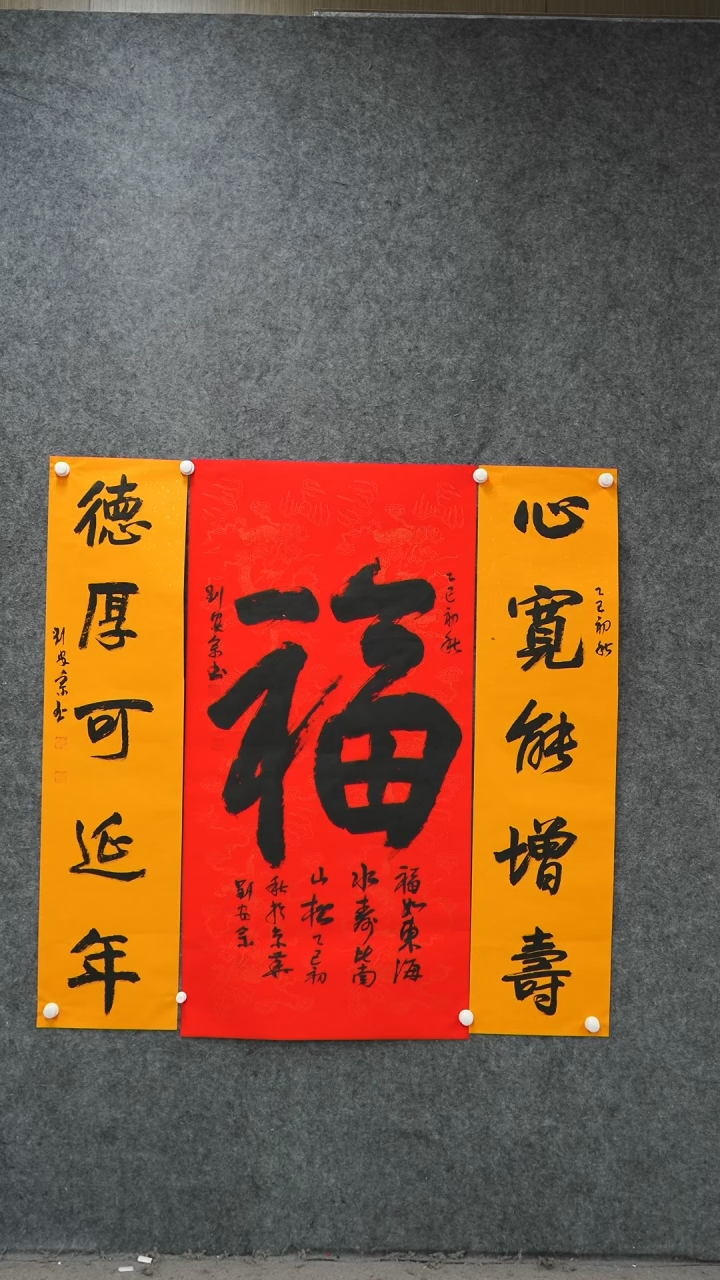 乙巳初秋
心寬能增壽
乙巳初秋
福
劉安宗书
福如東海
水壽比南
山松乙巳初
秋於京華
劉安宗
德厚可延年
劉安宗书